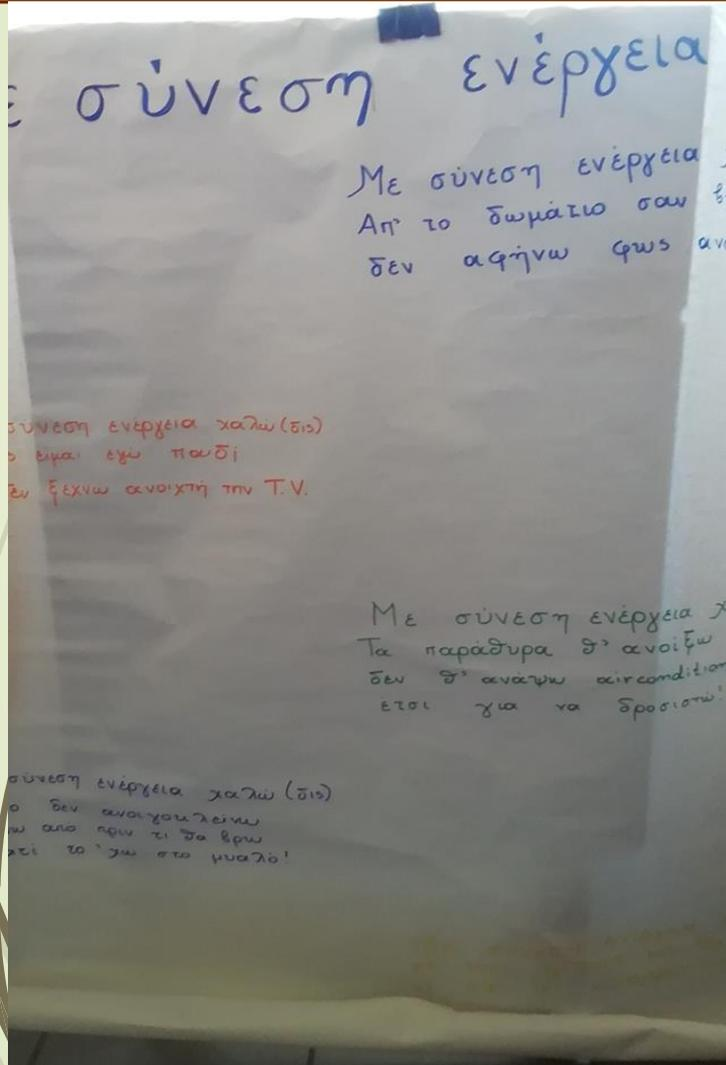 σύνεση ενέργεια
Με σύνεση ενέργεια
Απ' το δωμάτιο σαν
δεν αφήνω φως
σύνεση ενέργεια χαλώ (δις)
είμαι εγώ παιδί
ξεχνω ανοιχτή την T.V.
Με σύνεση ενέργεια
Τα παράθυρα θ' ανοίξω
δεν θ' ανάψω aircondition
ετσι για να δροσιστώ!
σύνεση ενέργεια χαλώ (δις)
δεν ανοιγοκλείνω
από πριν τι θα βρω
το 'χω στο μυαλό!